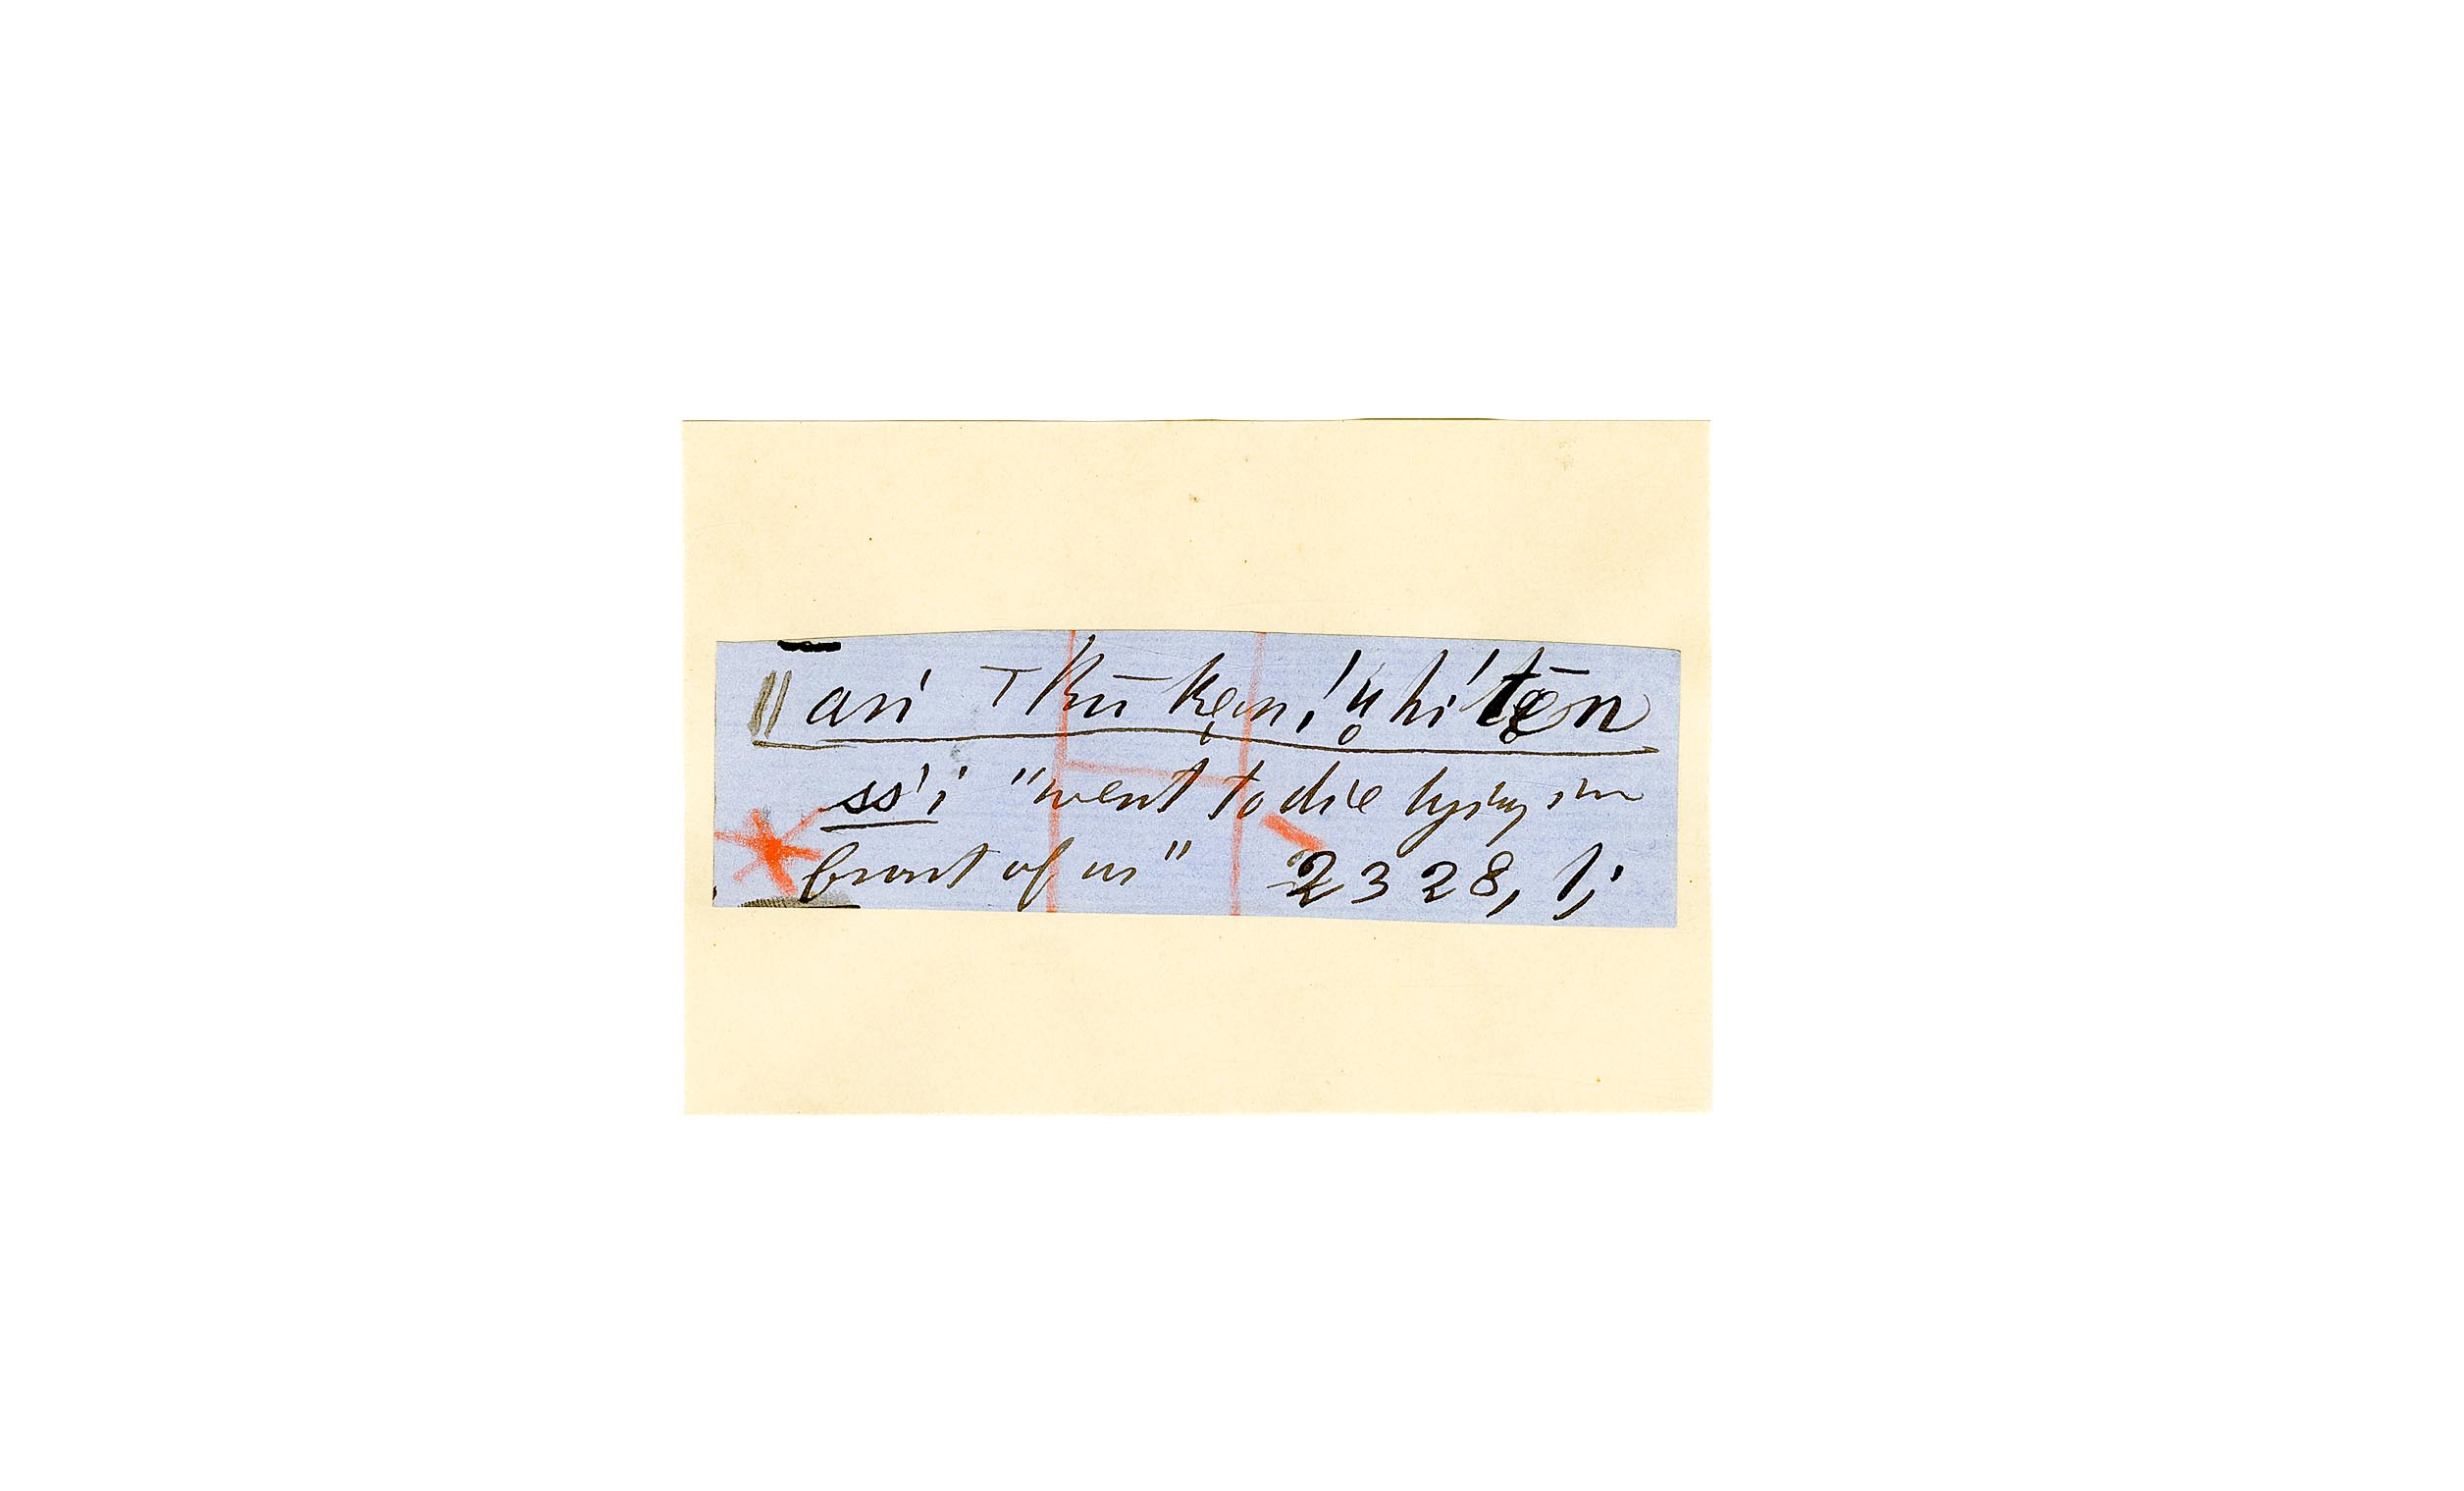 ‖ari ⊤kū kẹn, !ụ̈hi 'tẹ̄n
ss'i "went to die lying in
front of us" 2328, 1;